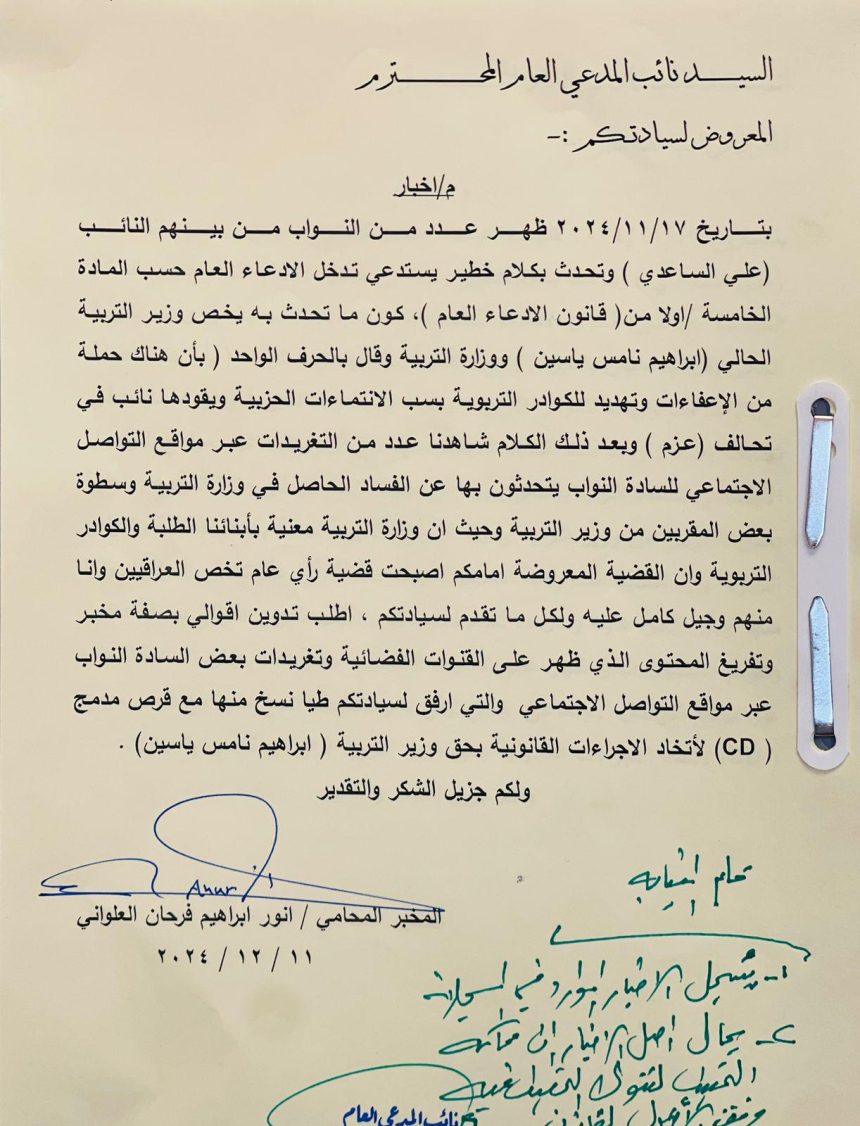 السيد نائب المدعي العام المحترم
المعروض لسيادتكم :-
م/اخبار
بتاريخ ٢٠٢٤/١١/١٧ ظهر عدد من النواب من بينهم النائب
(علي الساعدي ) وتحدث بكلام خطير يستدعي تدخل الادعاء العام حسب المادة
الخامسة /اولا من( قانون الادعاء العام )، كون ما تحدث به يخص وزير التربية
الحالي (ابراهيم نامس ياسين ) ووزارة التربية وقال بالحرف الواحد ( بأن هناك حملة
من الإعفاءات وتهديد للكوادر التربوية بسب الانتماءات الحزبية ويقودها نائب في
تحالف (عزم ) وبعد ذلك الكلام شاهدنا عدد من التغريدات عبر مواقع التواصل
الاجتماعي للسادة النواب يتحدثون بها عن الفساد الحاصل في وزارة التربية وسطوة
بعض المقربين من وزير التربية وحيث ان وزارة التربية معنية بأبنائنا الطلبة والكوادر
التربوية وان القضية المعروضة امامكم اصبحت قضية رأي عام تخص العراقيين وانا
منهم وجيل كامل عليه ولكل ما تقدم لسيادتكم ، اطلب تدوين اقوالي بصفة مخبر
وتفريغ المحتوى الذي ظهر على القنوات الفضائية وتغريدات بعض السادة النواب
عبر مواقع التواصل الاجتماعي والتي ارفق لسيادتكم طيا نسخ منها مع قرص مدمج
( CD) لأتخاد الاجراءات القانونية بحق وزير التربية ( ابراهيم نامس ياسين) .
ولكم جزيل الشكر والتقدير
Anur
المخبر المحامي / انور ابراهيم فرحان العلواني
٢٠٢٤ / ١٢ / ١١
١- يسجل الاخبار الوارد في السجلات
٢- يحال اصل الاخبار الى محكمة
التحقيق
نائب المدعي العام